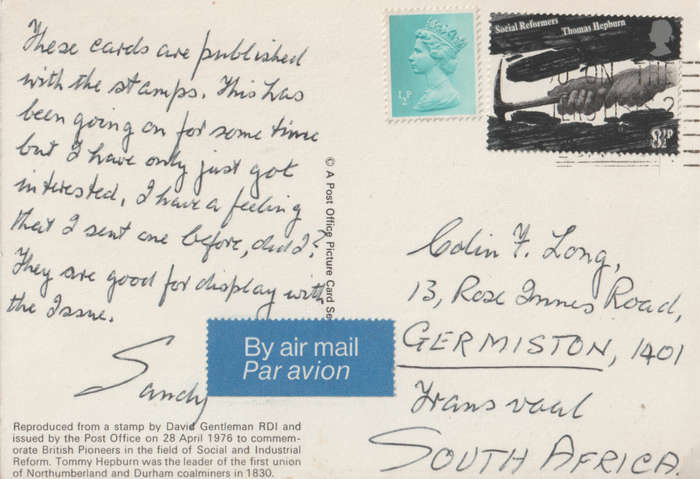 These cards are published
with the stamps. This has
been going on for some time
but I have only just got
interested. I have a feeling
that I sent one before, did I?
They are good for display with
the Issue.
Sandy
By air mail
Par avion
Reproduced from a stamp by David Gentleman RDI and
issued by the Post Office on 28 April 1976 to commem-
orate British Pioneers in the field of Social and Industrial
Reform. Tommy Hepburn was the leader of the first union
of Northumberland and Durham coalminers in 1830.
© A Post Office Picture Card Se
½P
Social Reformers Thomas Hepburn
8½P
Colin F. Long,
13, Rose Innes Road,
GERMISTON, 1401
Transvaal
SOUTH AFRICA.